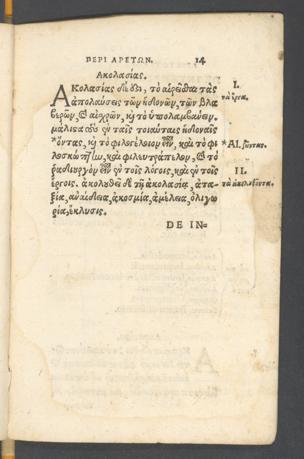 ΠΕΡΙ ΑΡΕΤΩΝ. 14
Ἀκολασίας.
Ἀκολασίας δέ ἐστι, τὸ αἱρεῖσθαι τὰς
ἀπολαύσεις τῶν ἡδονῶν, τῶν βλα
βερῶν, καὶ αἰσχρῶν, καὶ τὸ ὑπολαμβάνειν
μάλιστα ἐν ταῖς τοιαύταις ἡδοναῖς
*ὄντας, καὶ τὸ φιλογέλοιον εἶναι, καὶ τὸ φι
λοσκώπτην, καὶ φιλευτράπελον, καὶ τὸ
ῥᾳδιουργὸν εἶναι ἐν τοῖς λόγοις, καὶ ἐν τοῖς
ἔργοις. ἀκολουθεῖ δὲ τῇ ἀκολασίᾳ, ἀτα-
ξία, ἀναίδεια, ἀκοσμία, ἀμέλεια, ὀλιγω
ρία, ἔκλυσις.
DE IN=
I.
τὰ ἔργα.
*Al. ζῶντας.
II.
τὰ παρεπόμενα.